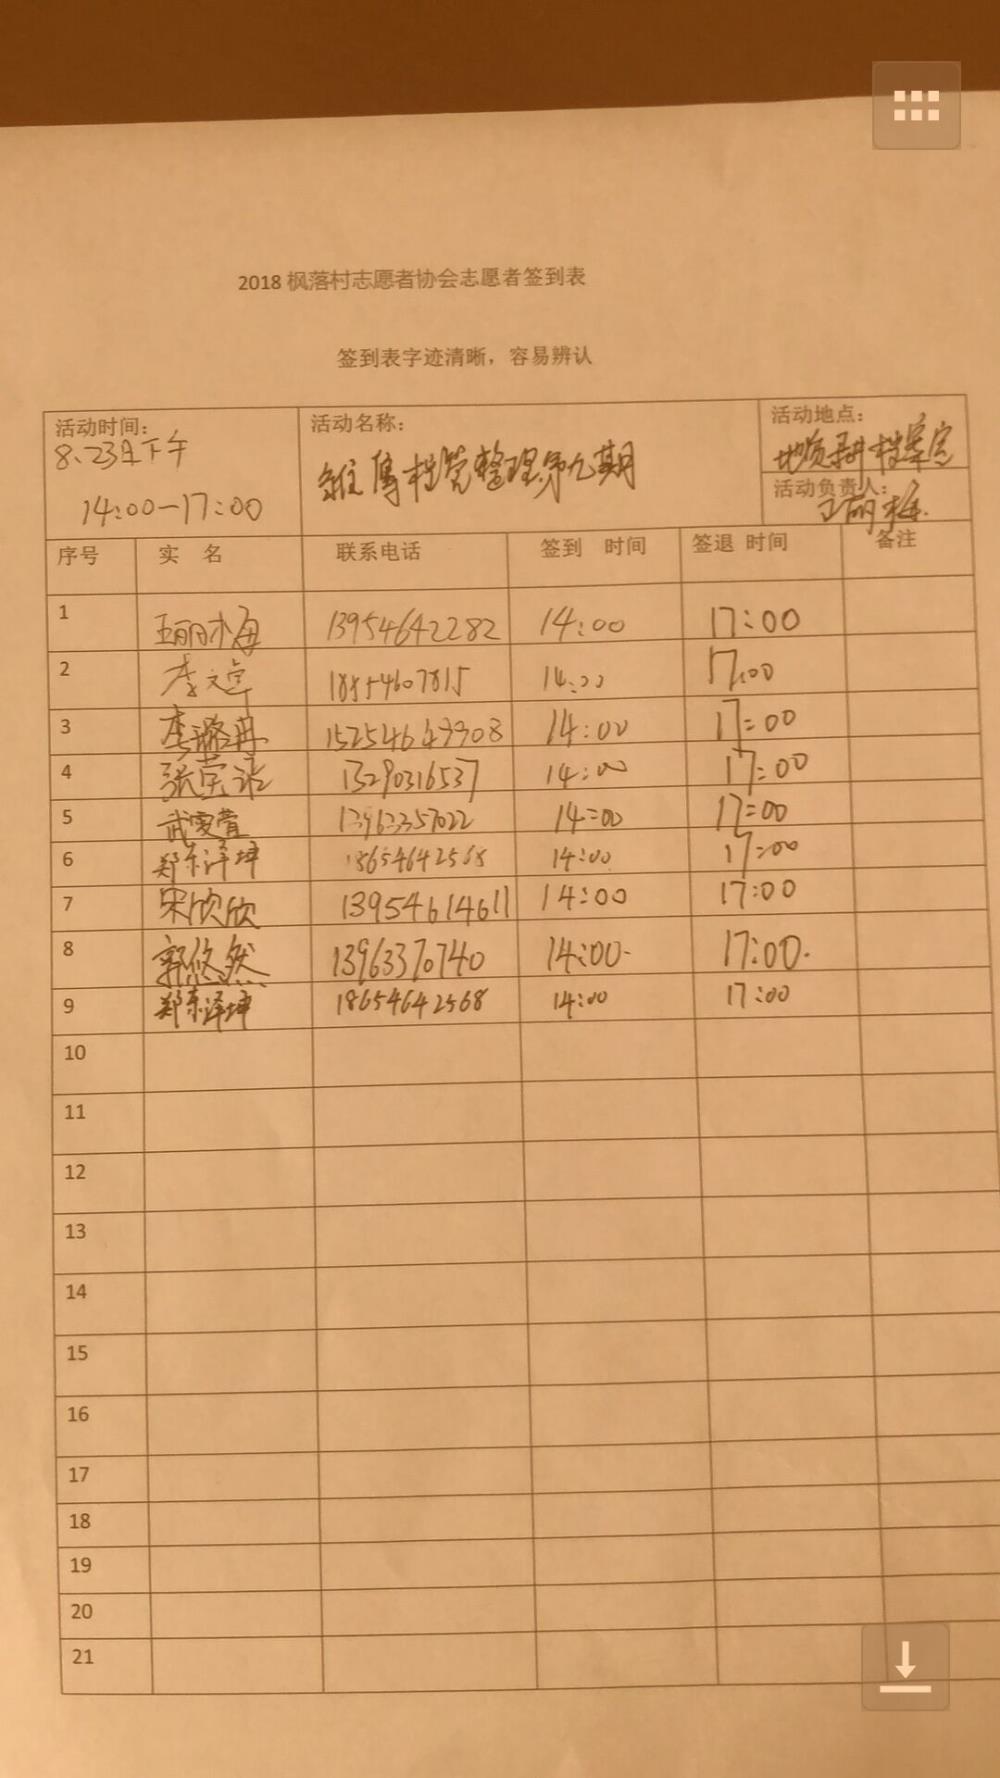 2018 枫落村志愿者协会志愿者签到表
签到表字迹清晰，容易辨认
活动时间： 活动名称： 活动地点：
8.23日下午
14:00—17:00
整理第九期
档案室
活动负责人：
王丽梅
序号 实 名 联系电话 签到 时间 签退 时间 备注
1 王丽梅 13954642282 14:00 17:00
2 李文卓 18554607815 14:00 17:00
3 李璐冉 14:00 17:00
4 张 13290316537 14:00 17:00
5 武雯萱 13963357022 14:00 17:00
6 郑东泽坤 18654642568 14:00 17:00
7 宋欣欣 13954614611 14:00 17:00
8 郭悠然 13963370740 14:00 17:00
9 郑东泽坤 18654642568 14:00 17:00
10
11
12
13
14
15
16
17
18
19
20
21